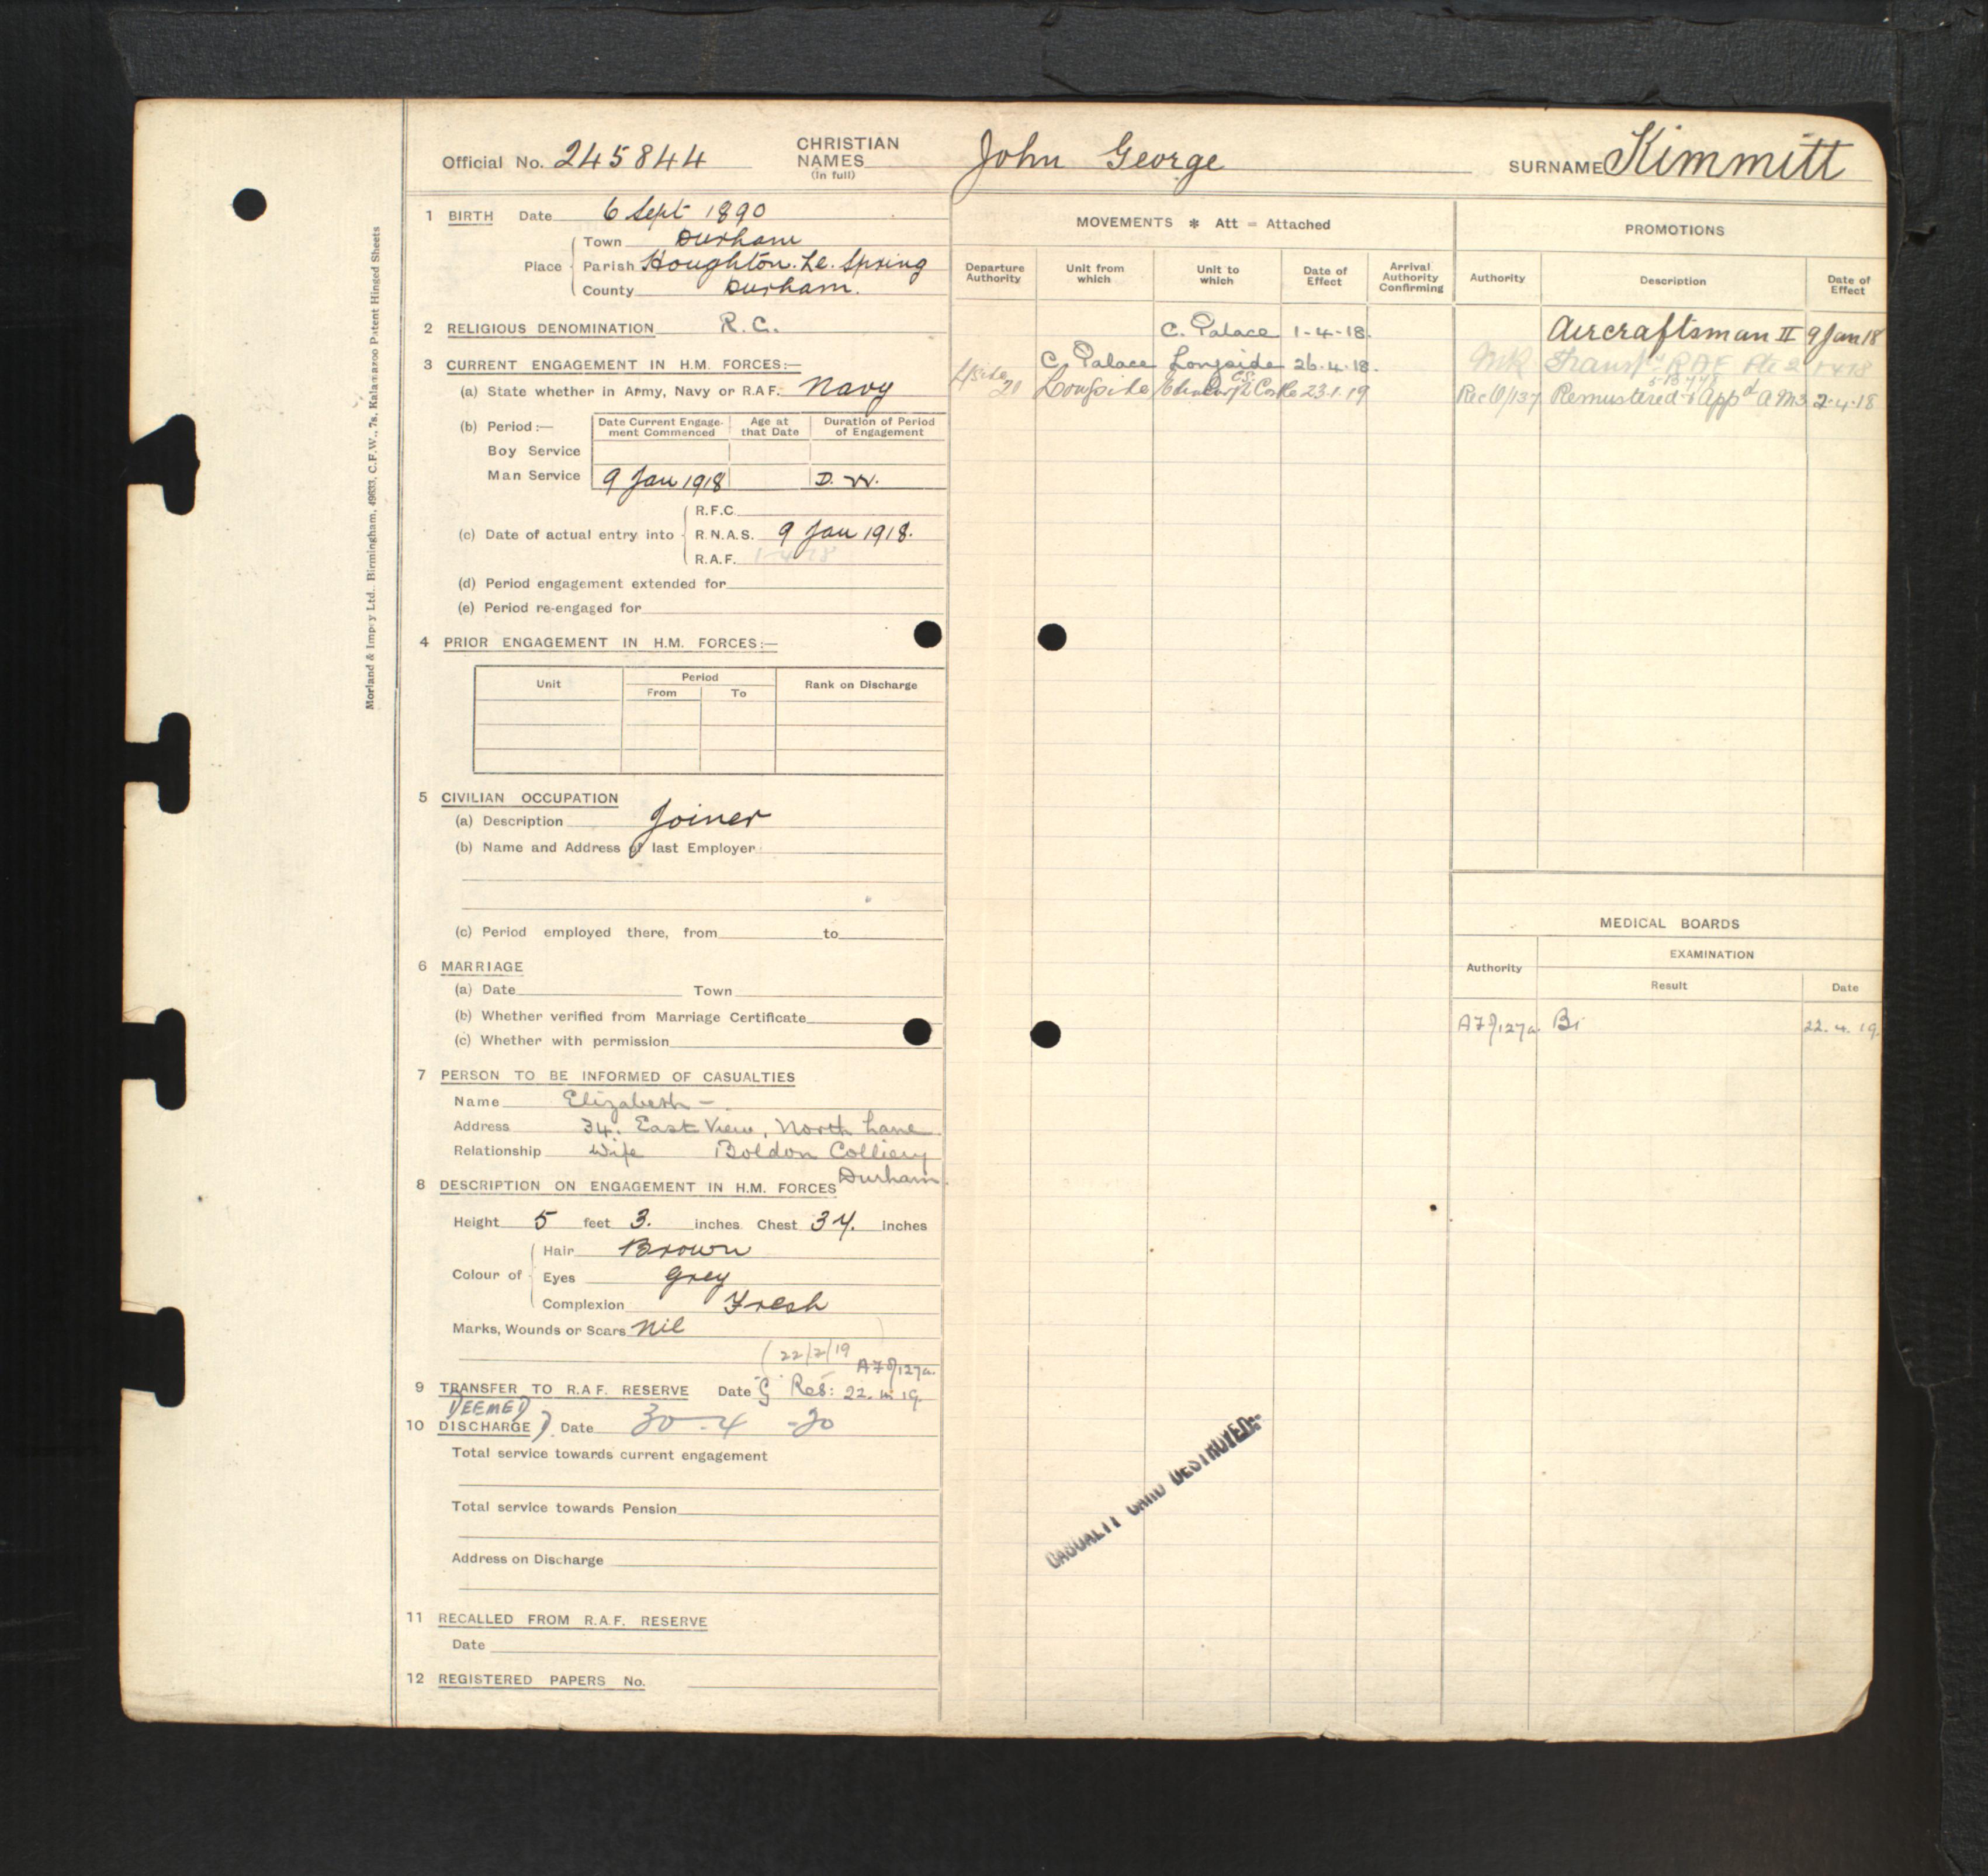 Official No. 245844 CHRISTIAN NAMES (in full) John George SURNAME Kimmitt
Morland & Impey Ltd., Birmingham, 49633, C.F.W., 7s, Kalamazoo Patent Hinged Sheets
1 BIRTH Date 6 Sept 1890
Town Durham
Place Parish Houghton. Le. Spring
County Durham.
2 RELIGIOUS DENOMINATION R. C.
3 CURRENT ENGAGEMENT IN H.M. FORCES:—
(a) State whether in Army, Navy or R.A.F. Navy
(b) Period:— Date Current Engagement Commenced Age at that Date Duration of Period of Engagement
Boy Service
Man Service 9 Jan 1918 D. W.
R.F.C.
(c) Date of actual entry into R.N.A.S. 9 Jan 1918.
R.A.F. 1-4-18
(d) Period engagement extended for
(e) Period re-engaged for
4 PRIOR ENGAGEMENT IN H.M. FORCES:—
Unit Period Rank on Discharge
From To
5 CIVILIAN OCCUPATION
(a) Description Joiner
(b) Name and Address of last Employer
(c) Period employed there, from to
6 MARRIAGE
(a) Date Town
(b) Whether verified from Marriage Certificate
(c) Whether with permission
7 PERSON TO BE INFORMED OF CASUALTIES
Name Elizabeth -
Address 34. East View, North Lane
Relationship Wife Boldon Colliery
Durham.
8 DESCRIPTION ON ENGAGEMENT IN H.M. FORCES
Height 5 feet 3. inches Chest 34. inches
Hair Brown
Colour of Eyes Grey
Complexion Fresh
Marks, Wounds or Scars Nil
(22/2/19
9 TRANSFER TO R.A.F. RESERVE Date G Res: 22. 19.
DEEMED
10 DISCHARGE) Date 30-4-20
Total service towards current engagement
Total service towards Pension
Address on Discharge
11 RECALLED FROM R.A.F. RESERVE
Date
12 REGISTERED PAPERS No.
MOVEMENTS * Att = Attached
Departure Authority Unit from which Unit to which Date of Effect Arrival Authority Confirming
C. Palace 1-4-18.
C. Palace Longside 26.4.18.
20 Longside 23.1.19
CASUALTY CARD DESTROYED
PROMOTIONS
Authority Description Date of Effect
Aircraftsman II 9 Jan 18
MR RAF Pte 2 1 4 18
Remustered & Appd AM3 2.4.18
MEDICAL BOARDS
Authority EXAMINATION
Result Date
Bi 22.4.19.